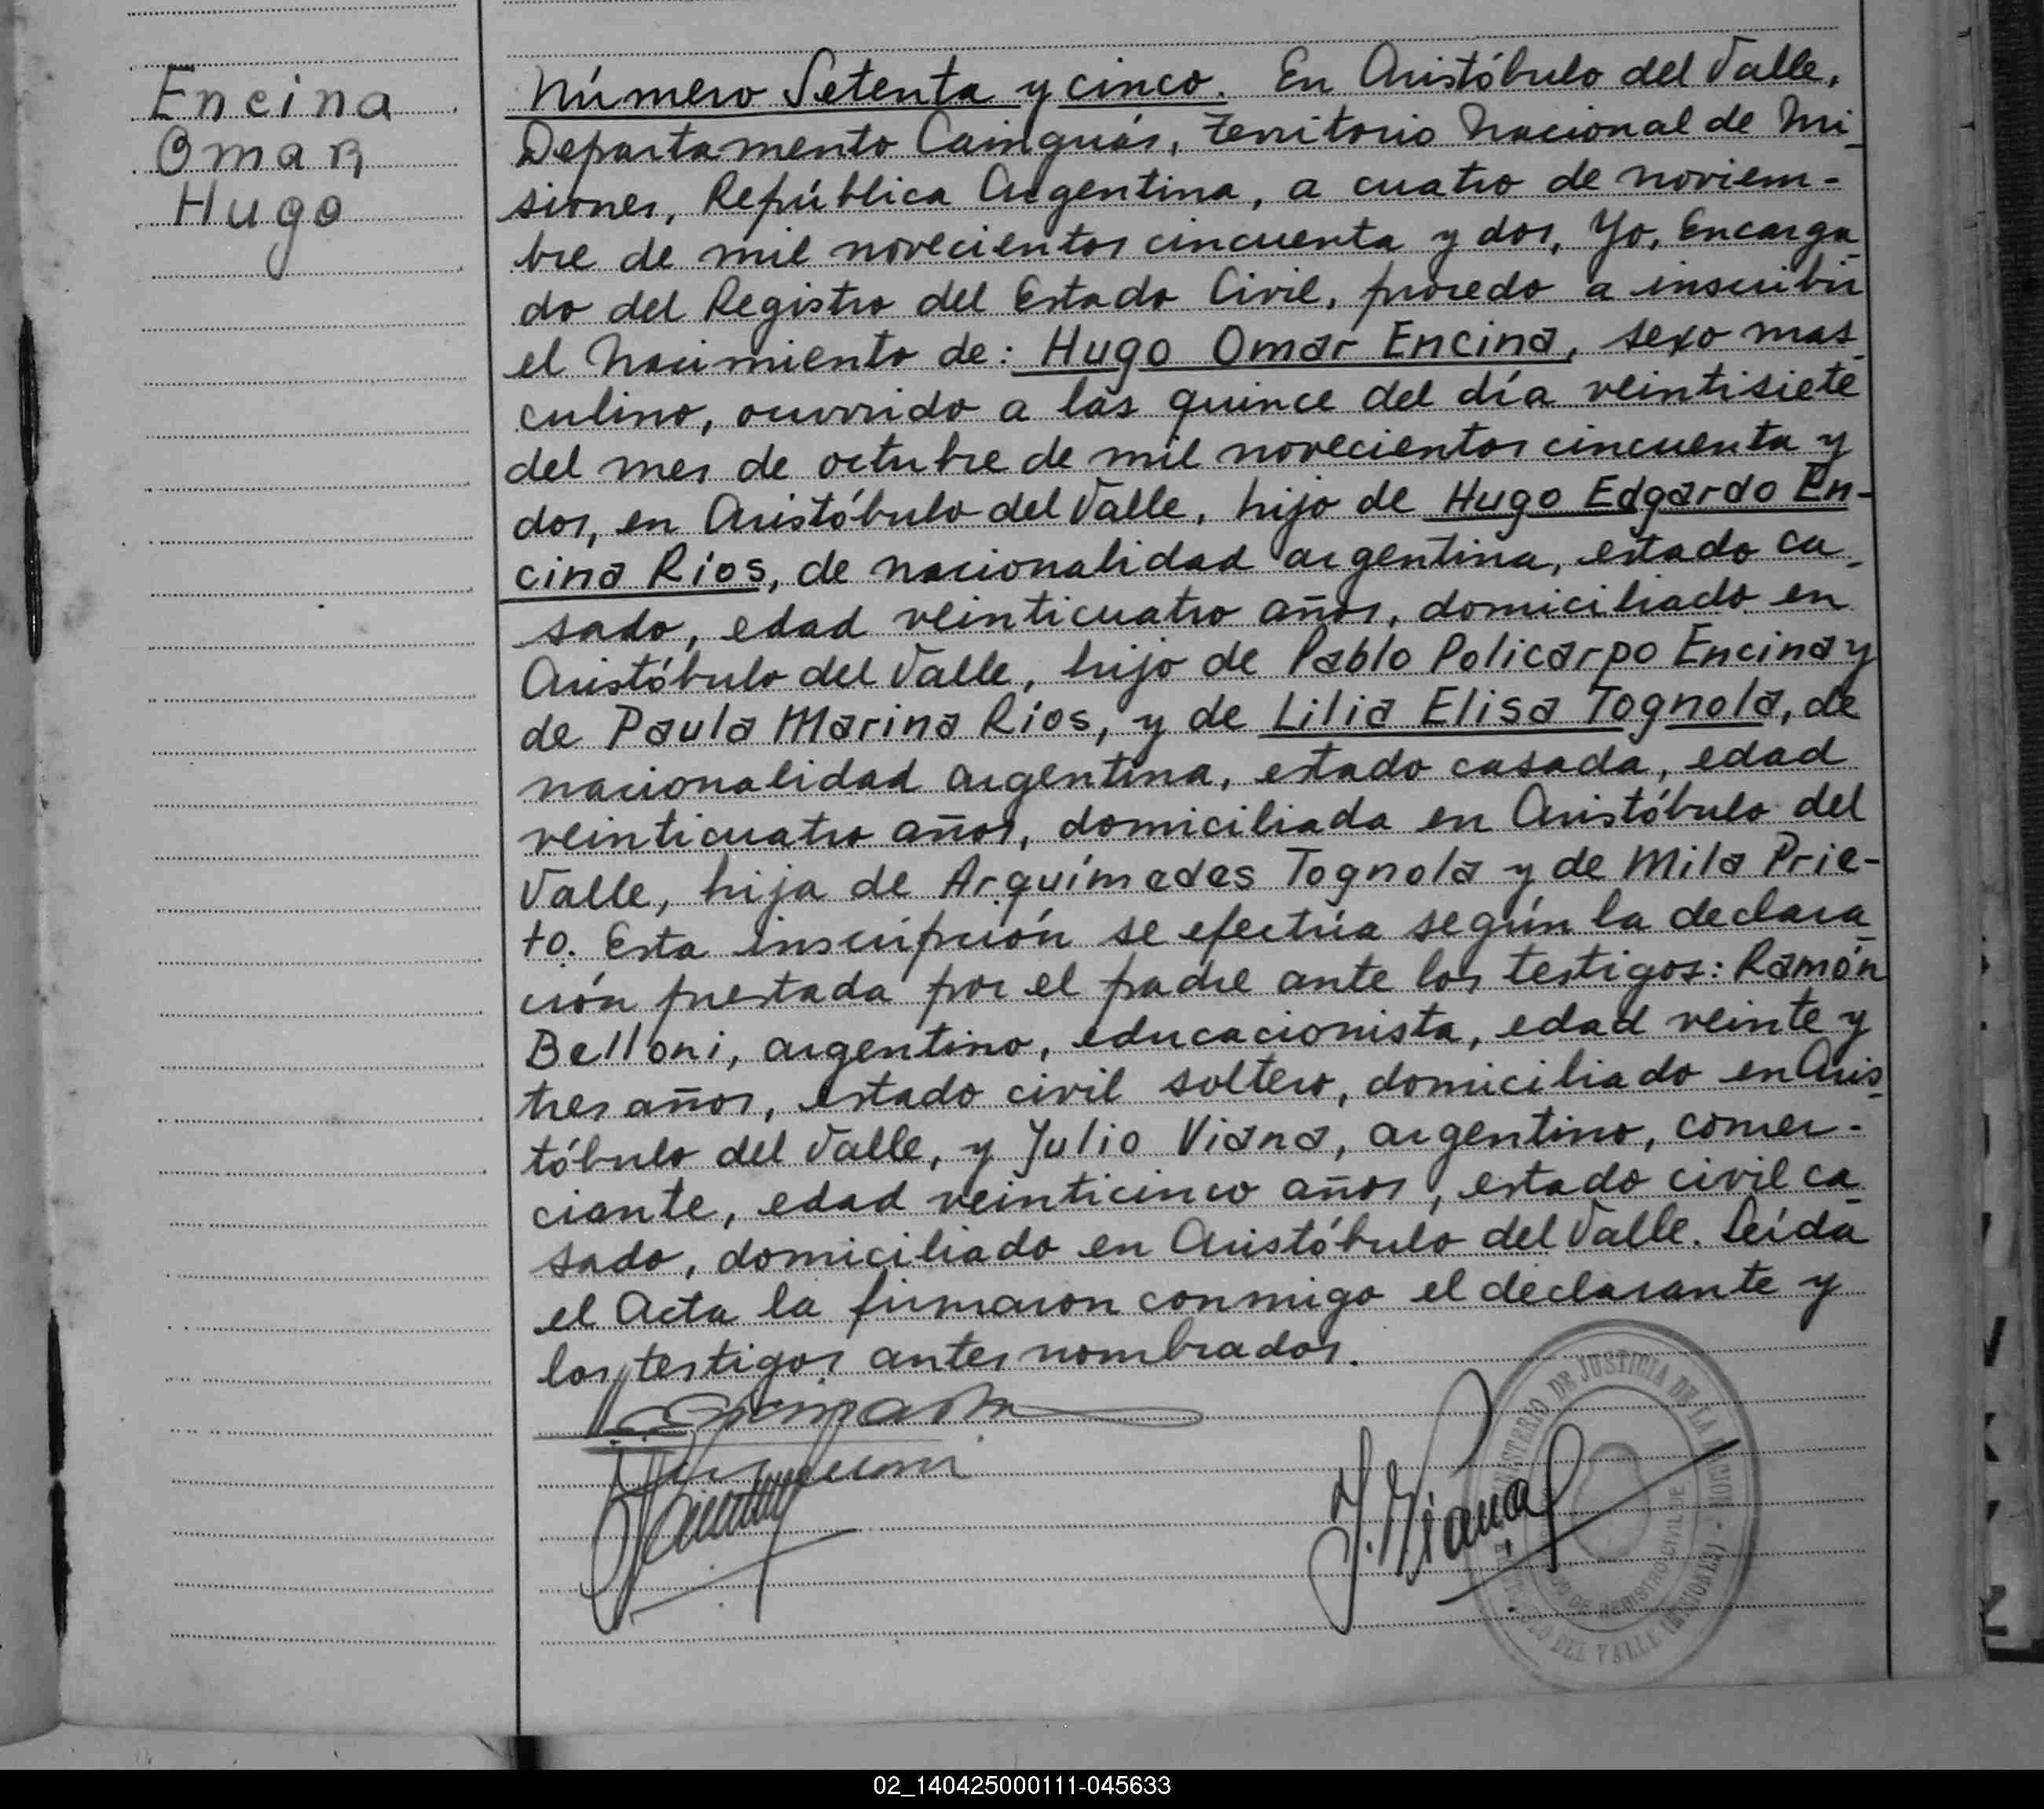 Encina
Omar
Hugo
Número Setenta y cinco. En Aristóbulo del Valle,
Departamento Cainguás, Territorio Nacional de Mi_
siones, República Argentina, a cuatro de noviem-
bre de mil novecientos cincuenta y dos, Yo, Encarga_
do del Registro del Estado Civil, procedo a inscribir
el Nacimiento de: Hugo Omar Encina, sexo mas_
culino, ocurrido a las quince del día veintisiete
del mes de octubre de mil novecientos cincuenta y
dos, en Aristóbulo del Valle, hijo de Hugo Edgardo En-
cina Ríos, de nacionalidad argentina, estado ca_
sado, edad veinticuatro años, domiciliado en
Aristóbulo del Valle, hijo de Pablo Policarpo Encina y
de Paula Marina Ríos, y de Lilia Elisa Tognola, de
nacionalidad argentina, estado casada, edad
veinticuatro años, domiciliada en Aristóbulo del
Valle, hija de Arquímedes Tognola y de Mila Prie-
to. Esta inscripción se efectúa según la declara_
ción prestada por el padre ante los testigos: Ramón
Belloni, argentino, educacionista, edad veinte y
tres años, estado civil soltero, domiciliado en Aris_
tóbulo del Valle, y Julio Viana, argentino, comer-
ciante, edad veinticinco años, estado civil ca_
sado, domiciliado en Aristóbulo del Valle. Leída
el Acta la firmaron conmigo el declarante y
los testigos antes nombrados.
J. Viana
MINISTERIO DE JUSTICIA DE LA NACION
REGISTRO CIVIL DE
DEL VALLE (MISIONES)
02_140425000111-045633